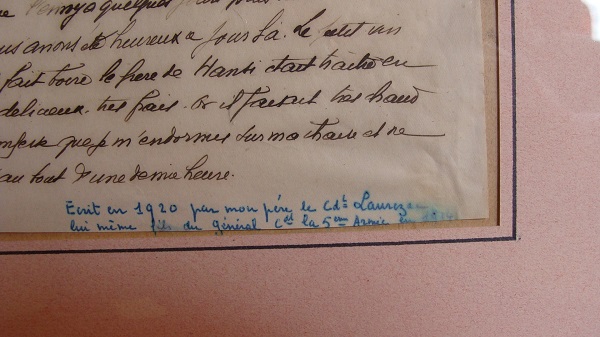 envoya quelques
us avons été heureux ce jour là. Le petit vin
fait boire le frere de Hansi était traitre en
delicieux. très frais. Or il faisait très chaud
que je m'endormis sur ma chaise et ne
au bout d'une demie heure.
Ecrit en 1920 par mon père le Cdt
lui même fils du général Cdt la 5eme Armée en 1914